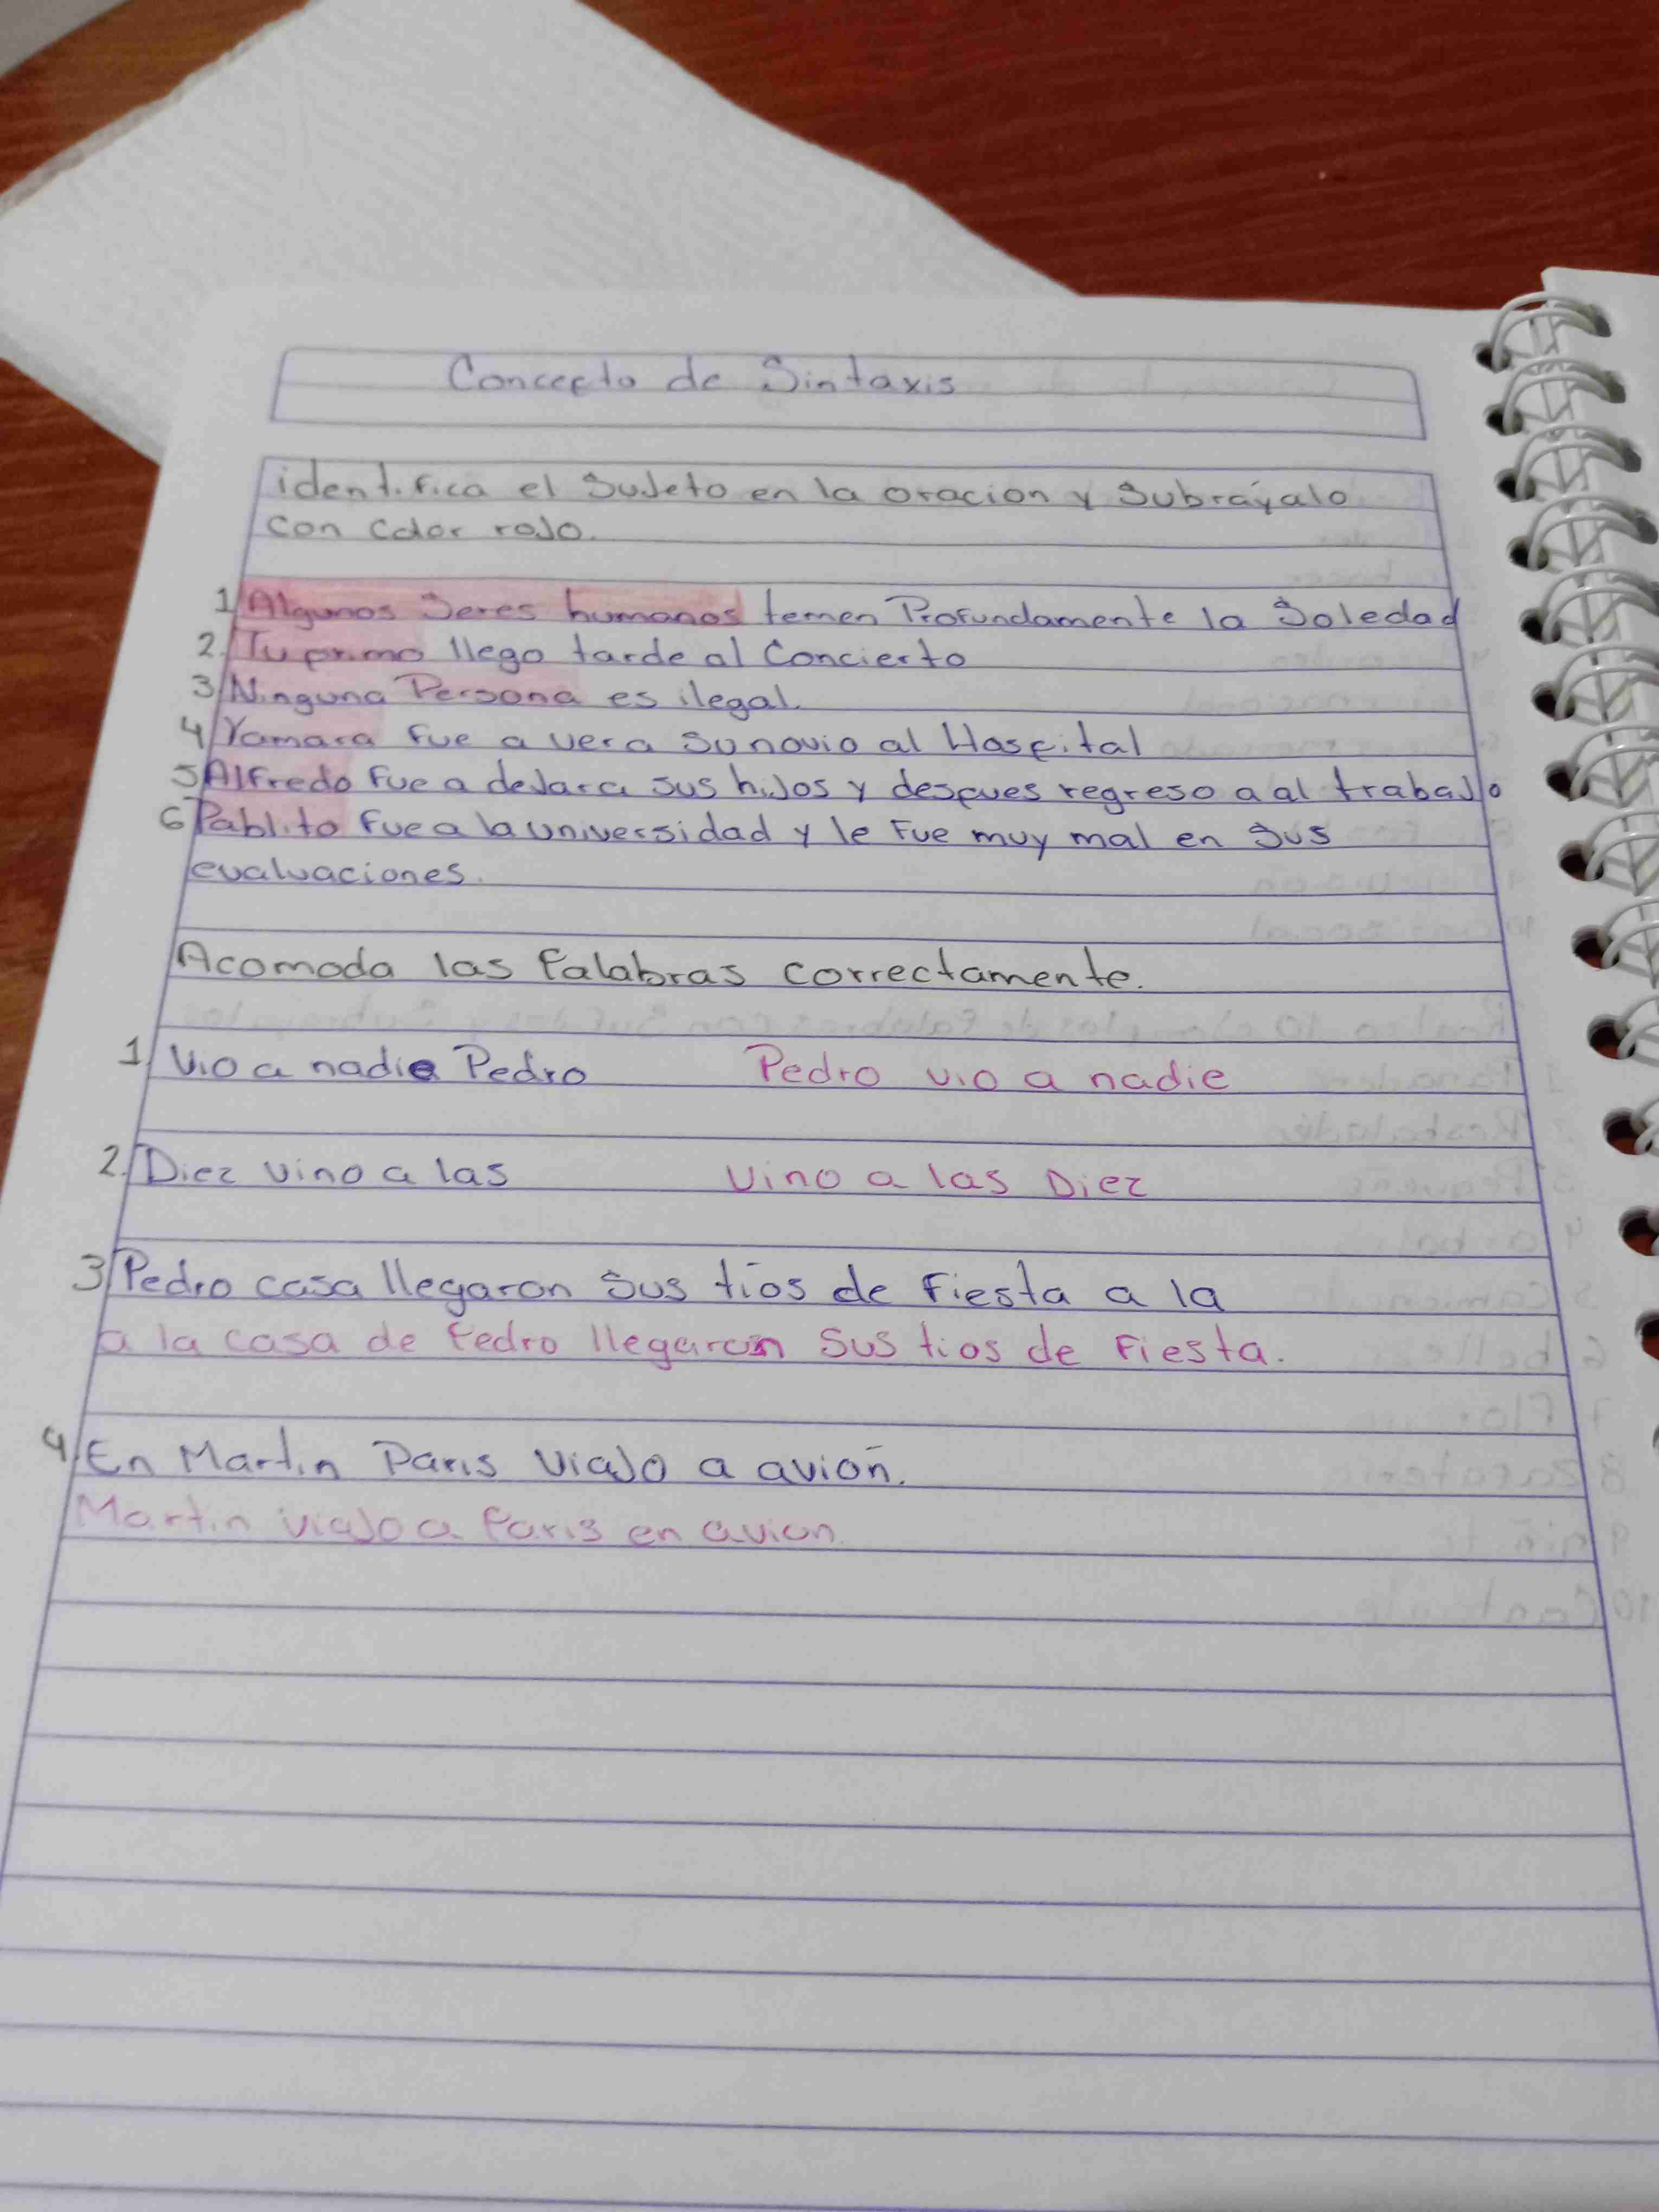 Concepto de Sintaxis
identifica el Sujeto en la oracion y Subráyalo
con color rojo.
1 Algunos Seres humanos temen Profundamente la Soledad
2. Tu primo llego tarde al Concierto
3 Ninguna Persona es ilegal.
4 Yamara fue a ver a su novio al Hospital
5 Alfredo fue a dejar a sus hijos y despues regreso a al trabajo
6 Pablito fue a la universidad y le fue muy mal en sus
evaluaciones.
Acomoda las Palabras correctamente.
1 Vio a nadie Pedro Pedro vio a nadie
2. Diez vino a las Vino a las Diez
3 Pedro casa llegaron Sus tíos de Fiesta a la
a la casa de Pedro llegaron Sus tios de Fiesta.
4 En Martin Paris viajo a avión.
Martin viajo a Paris en avion.